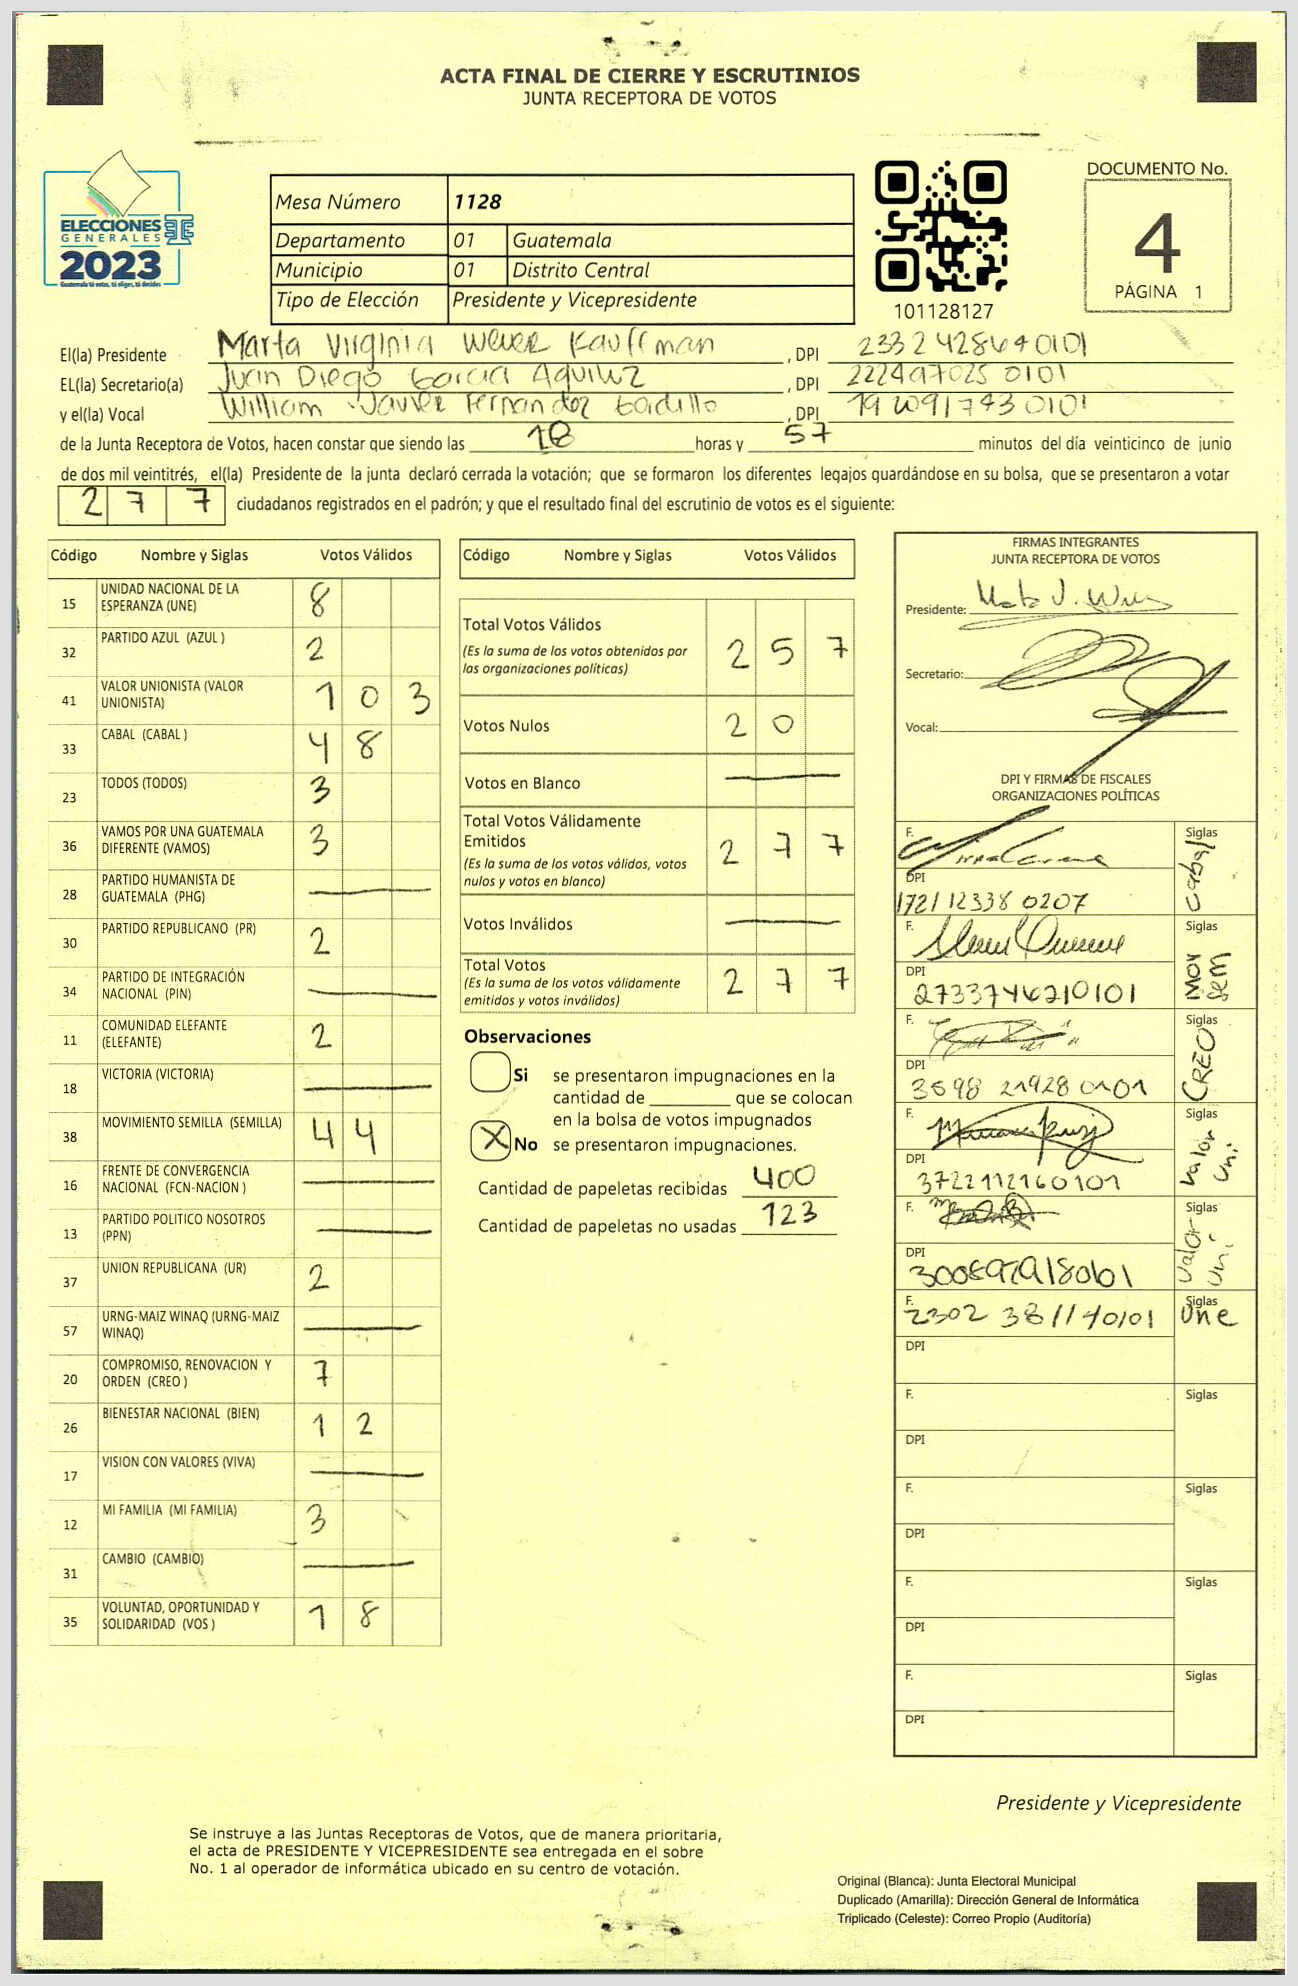 ACTA FINAL DE CIERRE Y ESCRUTINIOS
JUNTA RECEPTORA DE VOTOS
ELECCIONES
GENERALES
2023
Guatemala tú votas, tú eliges, tú decides
Mesa Número 1128
Departamento 01 Guatemala
Municipio 01 Distrito Central
Tipo de Elección Presidente y Vicepresidente
101128127
DOCUMENTO No.
4
PÁGINA 1
El(la) Presidente Marta Virginia Wever Kauffman , DPI 2332428640101
EL(la) Secretario(a) Juan Diego Garcia Aguiluz , DPI 2224970250101
y el(la) Vocal William Javier Fernandez Gordillo , DPI 1920917430101
de la Junta Receptora de Votos, hacen constar que siendo las 18 horas y 57 minutos del día veinticinco de junio
de dos mil veintitrés, el(la) Presidente de la junta declaró cerrada la votación; que se formaron los diferentes legajos quardándose en su bolsa, que se presentaron a votar
277 ciudadanos registrados en el padrón; y que el resultado final del escrutinio de votos es el siguiente:
Código Nombre y Siglas Votos Válidos
15 UNIDAD NACIONAL DE LA ESPERANZA (UNE) 8
32 PARTIDO AZUL (AZUL ) 2
41 VALOR UNIONISTA (VALOR UNIONISTA) 103
33 CABAL (CABAL ) 48
23 TODOS (TODOS) 3
36 VAMOS POR UNA GUATEMALA DIFERENTE (VAMOS) 3
28 PARTIDO HUMANISTA DE GUATEMALA (PHG) —
30 PARTIDO REPUBLICANO (PR) 2
34 PARTIDO DE INTEGRACIÓN NACIONAL (PIN) —
11 COMUNIDAD ELEFANTE (ELEFANTE) 2
18 VICTORIA (VICTORIA) —
38 MOVIMIENTO SEMILLA (SEMILLA) 44
16 FRENTE DE CONVERGENCIA NACIONAL (FCN-NACION ) —
13 PARTIDO POLITICO NOSOTROS (PPN) —
37 UNION REPUBLICANA (UR) 2
57 URNG-MAIZ WINAQ (URNG-MAIZ WINAQ) —
20 COMPROMISO, RENOVACION Y ORDEN (CREO ) 7
26 BIENESTAR NACIONAL (BIEN) 12
17 VISION CON VALORES (VIVA) —
12 MI FAMILIA (MI FAMILIA) 3
31 CAMBIO (CAMBIO) —
35 VOLUNTAD, OPORTUNIDAD Y SOLIDARIDAD (VOS ) 18
Código Nombre y Siglas Votos Válidos
Total Votos Válidos 257
(Es la suma de los votos obtenidos por
las organizaciones políticas)
Votos Nulos 20
Votos en Blanco —
Total Votos Válidamente
Emitidos 277
(Es la suma de los votos válidos, votos
nulos y votos en blanco)
Votos Inválidos —
Total Votos 277
(Es la suma de los votos válidamente
emitidos y votos inválidos)
Observaciones
Si se presentaron impugnaciones en la
cantidad de ________ que se colocan
en la bolsa de votos impugnados
X No se presentaron impugnaciones.
Cantidad de papeletas recibidas 400
Cantidad de papeletas no usadas 123
FIRMAS INTEGRANTES
JUNTA RECEPTORA DE VOTOS
Presidente:
Secretario:
Vocal:
DPI Y FIRMAS DE FISCALES
ORGANIZACIONES POLÍTICAS
F. Siglas Cabal
DPI 1721 12338 0207
F. Siglas Mov Sem
DPI 2733746210101
F. Siglas CREO
DPI 3598 21928 0101
F. Siglas Valor Uni.
DPI 3722112160101
F. Siglas Valor Uni.
DPI
F. 2302 38114 0101 Siglas Une
DPI
F. Siglas
DPI
F. Siglas
DPI
F. Siglas
DPI
F. Siglas
DPI
Presidente y Vicepresidente
Se instruye a las Juntas Receptoras de Votos, que de manera prioritaria,
el acta de PRESIDENTE Y VICEPRESIDENTE sea entregada en el sobre
No. 1 al operador de informática ubicado en su centro de votación.
Original (Blanca): Junta Electoral Municipal
Duplicado (Amarilla): Dirección General de Informática
Triplicado (Celeste): Correo Propio (Auditoría)